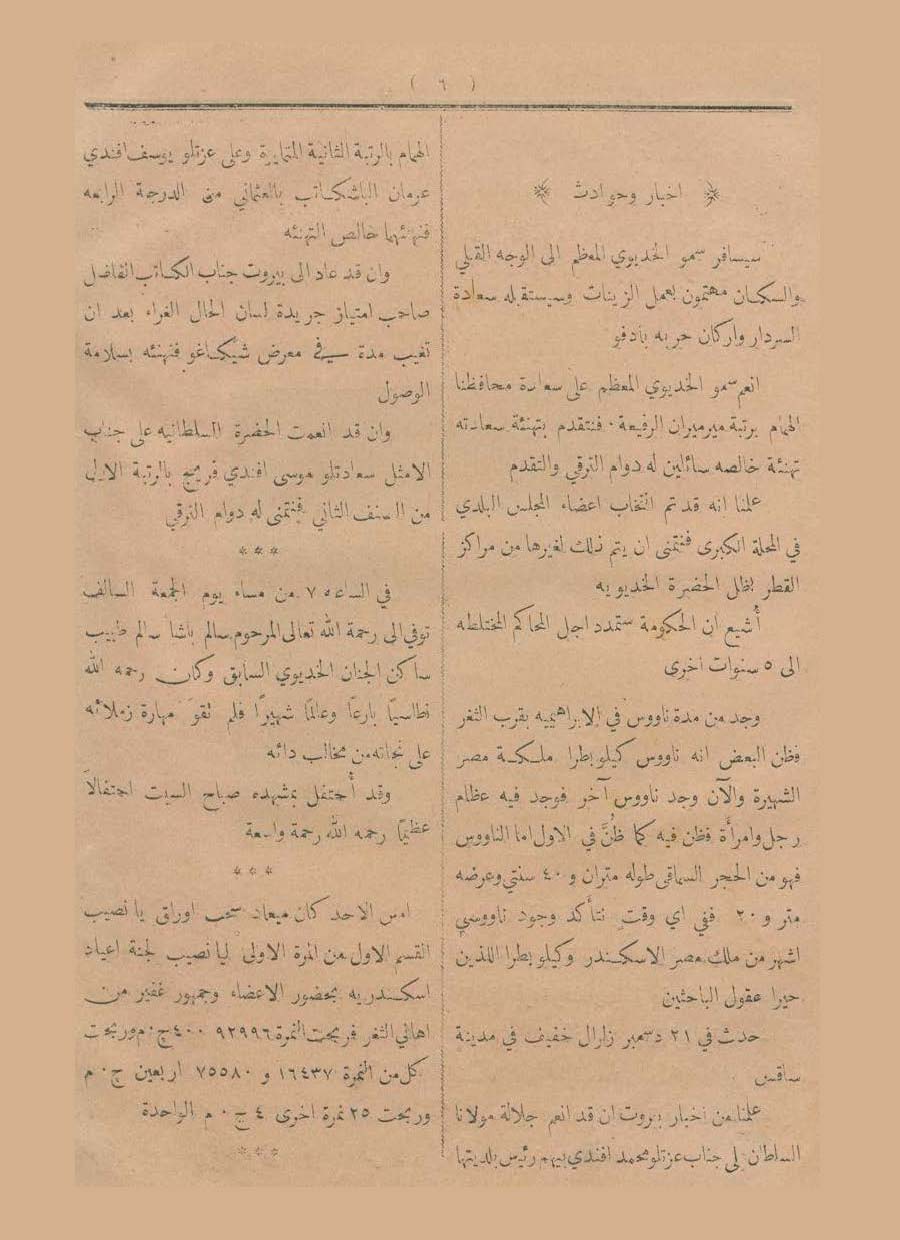 ( ٦ )
اخبار وحوادث
سيسافر سمو الخديوي المعظم الى الوجه القبلي
والسكان مهتمون بعمل الزينات وسيستقبله سعادة
السردار واركان حربه بادفو
انعم سمو الخديوي المعظم على سعادة محافظنا
الهمام برتبة ميرميران الرفيعة ٠ فنتقدم بتهنئة سعادته
تهنئة خالصه سائلين له دوام الترقي والتقدم
علمنا انه قد تم انتخاب اعضاء المجلس البلدي
في المحلة الكبرى فنتمنى ان يتم ذلك لغيرها من مراكز
القطر بظل الحضرة الخديويه
أُشيع ان الحكومة ستمدد اجل المحاكم المختلطه
الى ٥ سنوات اخرى
وجد من مدة ناووس في الابراهيميه بقرب الثغر
فظن البعض انه ناووس كيلوبطرا ملكة مصر
الشهيرة والآن وجد ناووس آخر فوجد فيه عظام
رجل وامرأة فظن فيه كما ظُنَّ في الاول اما الناووس
فهو من الحجر السماقى طوله متران و ٤٠ سنتي وعرضه
متر و ٢٠ ففي اي وقتٍ نتأكد وجود ناووسي
اشهر من ملك مصر الاسكندر وكيلوبطرا اللذين
حيرا عقول الباحثين
حدث في ٢١ دسمبر زلزال خفيف في مدينة
ساقس
علمنا من اخبار بيروت ان قد انعم جلالة مولانا
السلطان لى جناب عزتلو محمد افندي بيهم رئيس بلديتها
الهمام بالرتبة الثانية المتمايزة وعلى عزتلو يوسف افندي
عرمان الباشكاتب بالعثماني من الدرجة الرابعه
فنهنئهما خالص التهنئه
وان قد عاد الى بيروت جناب الكاتب الفاضل
صاحب امتياز جريدة لسان الحال الغراء بعد ان
تغيب مدة في معرض شيكاغو فنهنئه بسلامة
الوصول
وان قد انعمت الحضرة السلطانيه على جناب
الامثل سعادتلو موسى افندي فريج بالرتبة الاولى
من الصنف الثاني فنتمنى له دوام الترقي
***
في الساعه ٧ من مساء يوم الجمعة السالف
توفي الى رحمة الله تعالى المرحوم سالم باشا سالم طبيب
ساكن الجنان الخديوي السابق وكان رحمه الله
نطاسيًا بارعًا وعالمًا شهيرًا فلم تقوَ مهارة زملائه
على نجاته من مخالب دائه
وقد أُحتفل بمشهده صباح السبت احتفالاً
عظيمًا رحمه الله رحمة واسعة
***
امس الاحد كان ميعاد سحب اوراق يا نصيب
القسم الاول من المرة الاولى ليا نصيب لجنة اعياد
اسكندريه بحضور الاعضاء وجمهور غفير من
اهالي الثغر فربحت النمرة ٩٢٩٩٦ ٤٠٠ ج ٠ م وربحت
كل من النمرة ١٦٤٣٧ و ٧٥٥٨٠ اربعين ج ٠ م
وربحت ٢٥ نمرة اخرى ٤ ج ٠ م الواحدة
***